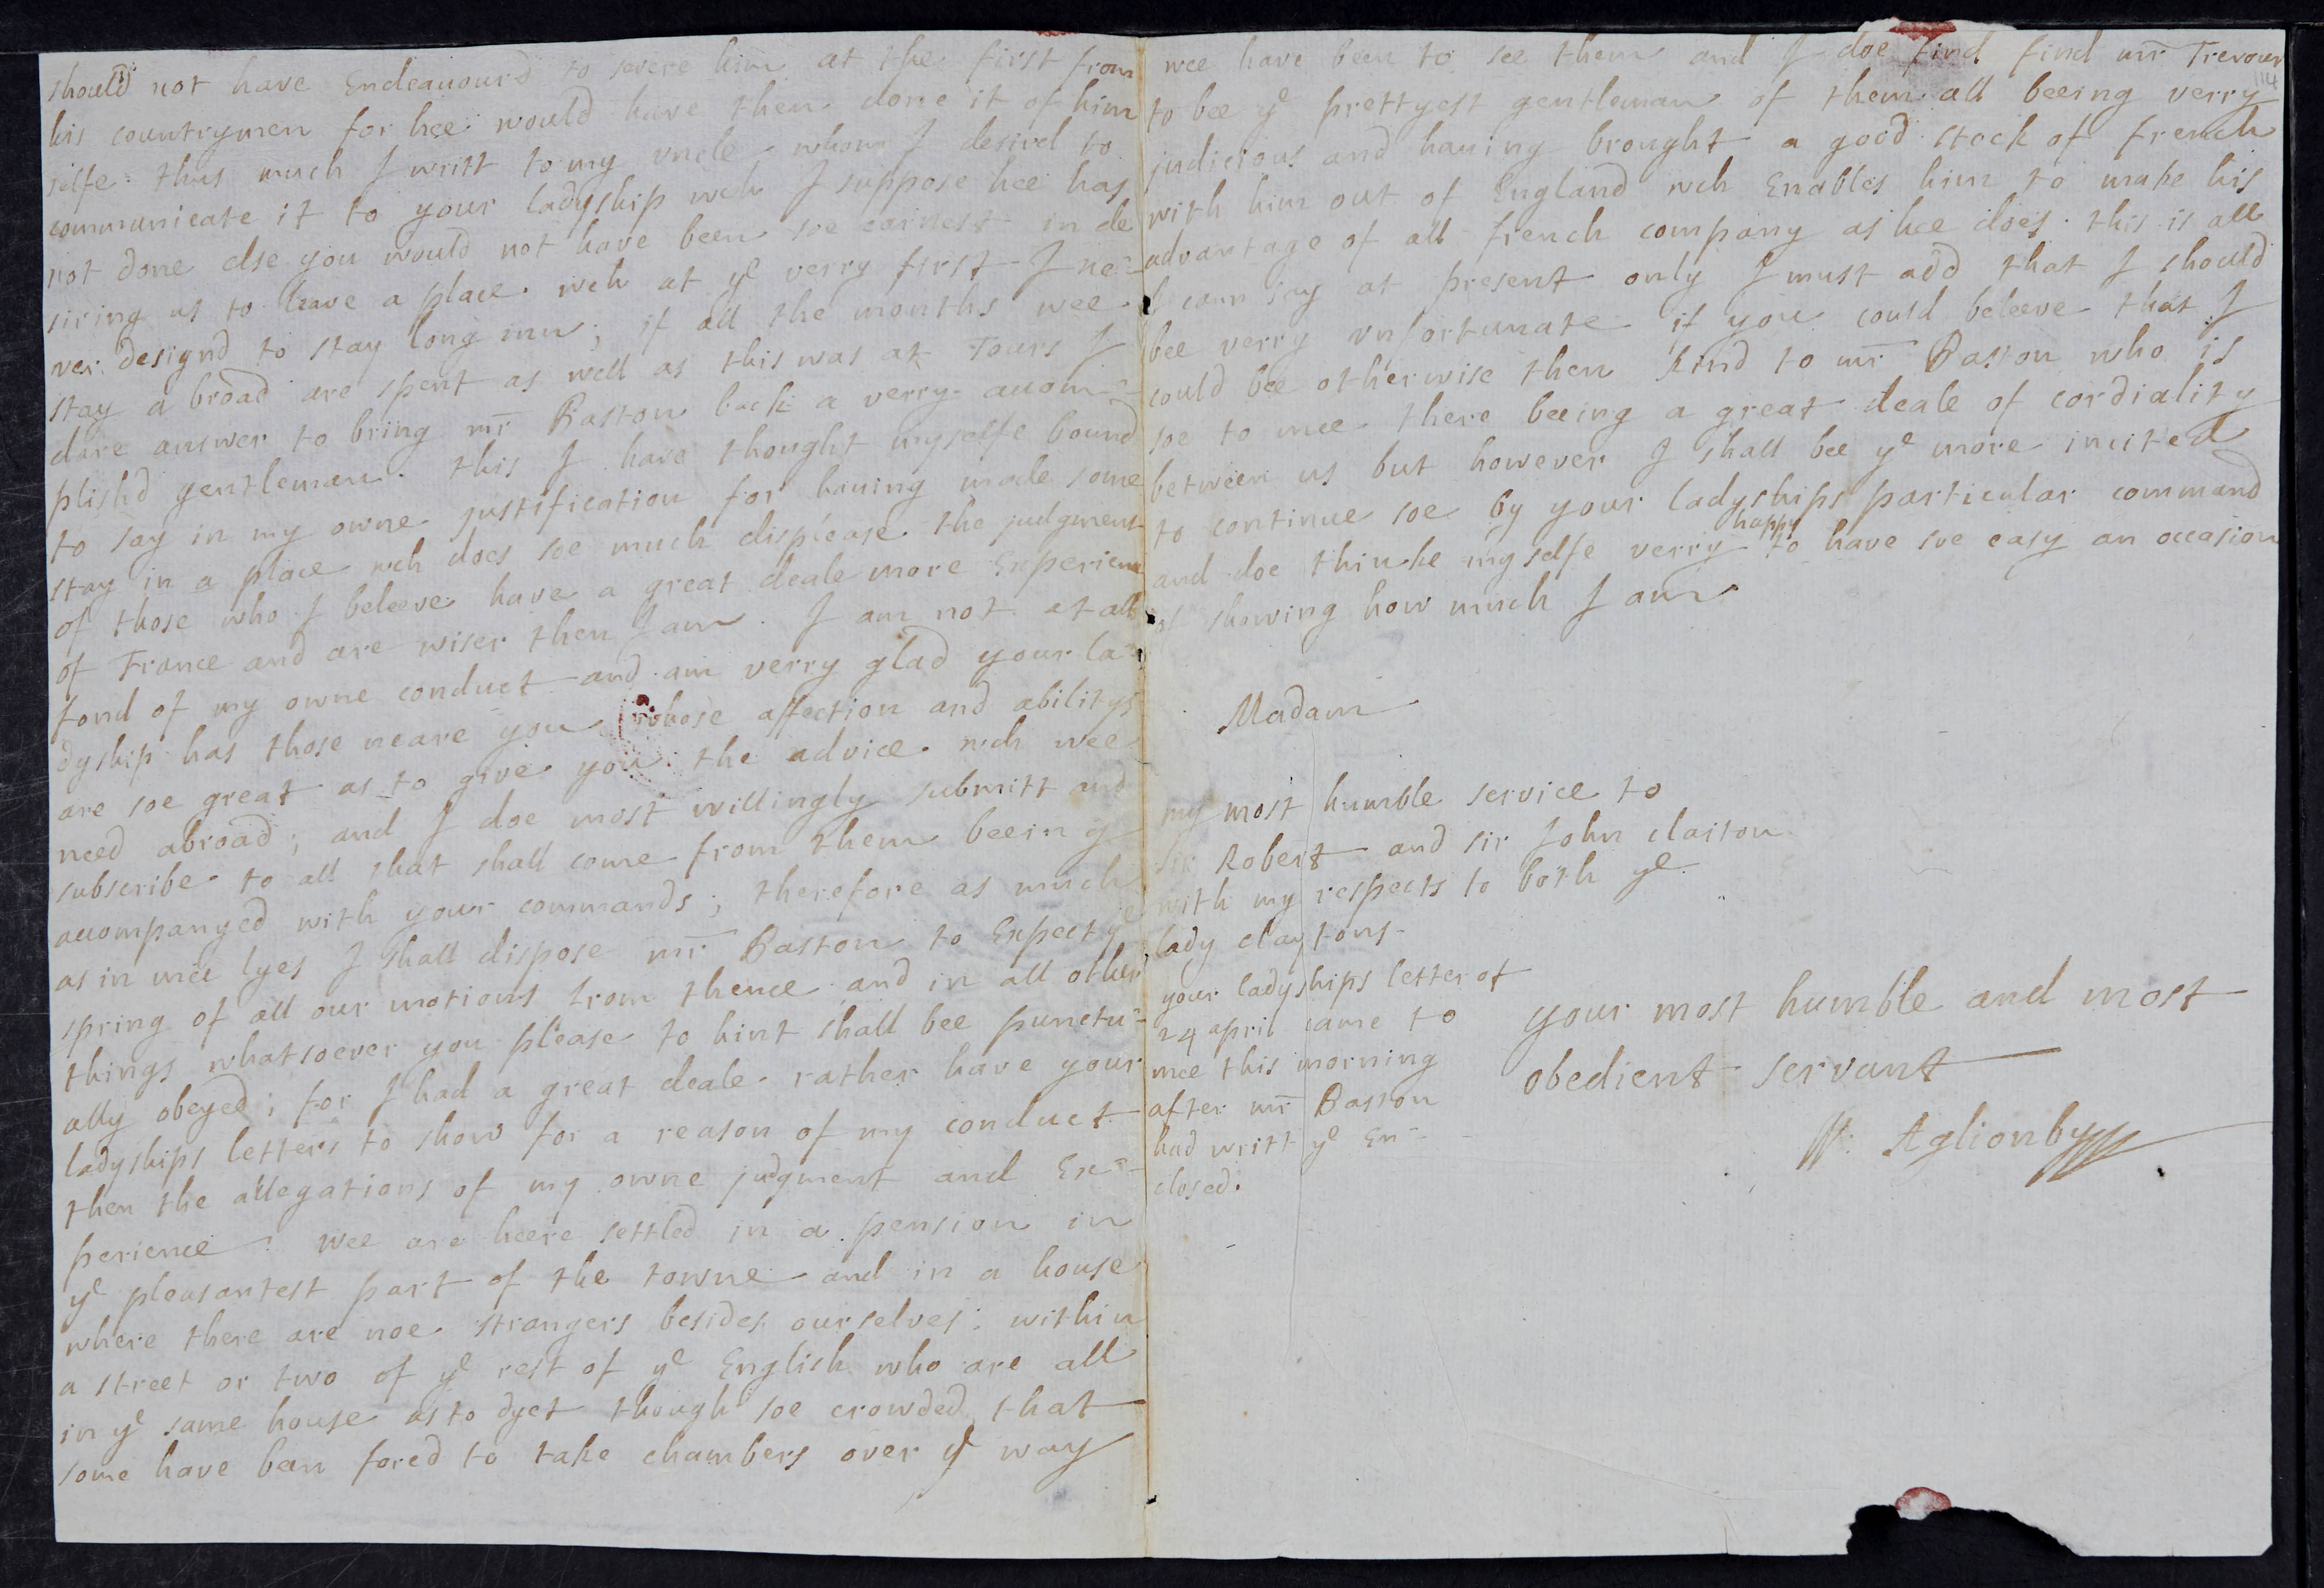 should not have Endeavourd to severe him at the first from
his countrymen for hee would have then done it of him
selfe: thus much I writt to my vncle whom I desired to
communicate it to your ladyship wch I suppose hee has
not done else you would not have been soe earnest in de
siring us to leave a place wch at ye verry first I ne-
ver designd to stay long inn; if all the months wee
stay a broad are spent as well as this was at Tours I
dare answer to bring mr Baston back a verry accom-
plishd gentleman. this I have thought myselfe bound
to say in my owne justification for having made some
stay in a place wch does soe much displease the judgment
of those who I beleeve have a great deale more Experience
of France and are wiser then I am. I am not at all
fond of my owne conduct and am verry glad your la-
dyship has those neare you whose affection and abilitys
are soe great as to give you the advice wch wee
need abroad; and I doe most willingly submitt and
subscribe to all that shall come from them beeing
accompanyed with your commands; therefore as much
as in mee lyes I shall dispose mr Baston to Expect ye
spring of all our motions from thence and in all other
things whatsoever you please to hint shall bee punctu-
ally obeyed; for I had a great deale rather have your
ladyships letters to show for a reason of my conduct
then the allegations of my owne judgment and Ex-
perience: wee are heere settled in a pension in
ye pleasantest part of the towne and in a house
where there are noe strangers besides ourselves: within
a street or two of ye rest of ye English who are all
in ye same house as to dyet though soe crowded that
some have ben forcd to take chambers over ye way
114
wee have been to see them and I doe find find mr Trevour
to bee ye prettyest gentleman of them all beeing verry
judicious and having brought a good stock of french
with him out of England wch Enables him to make his
advantage of all french company as hee does. this is all
I cann say at present only I must add that I should
bee verry vnfortunate if you could beleeve that I
could bee otherwise then kind to mr Baston who is
soe to mee there beeing a great deale of cordiality
between us but however I shall bee ye more incited
to continue soe by your ladyships particular command
and doe thinke my selfe verry happy to have soe easy an occasion
of showing how much I am
Madam
my most humble service to
sir Robert and sir John claiton
with my respects to both ye
lady claytons
your ladyships letter of
24 april came to
mee this morning
after mr Baston
had writt ye En-
closed.
your most humble and most
obedient servant
W: Aglionby